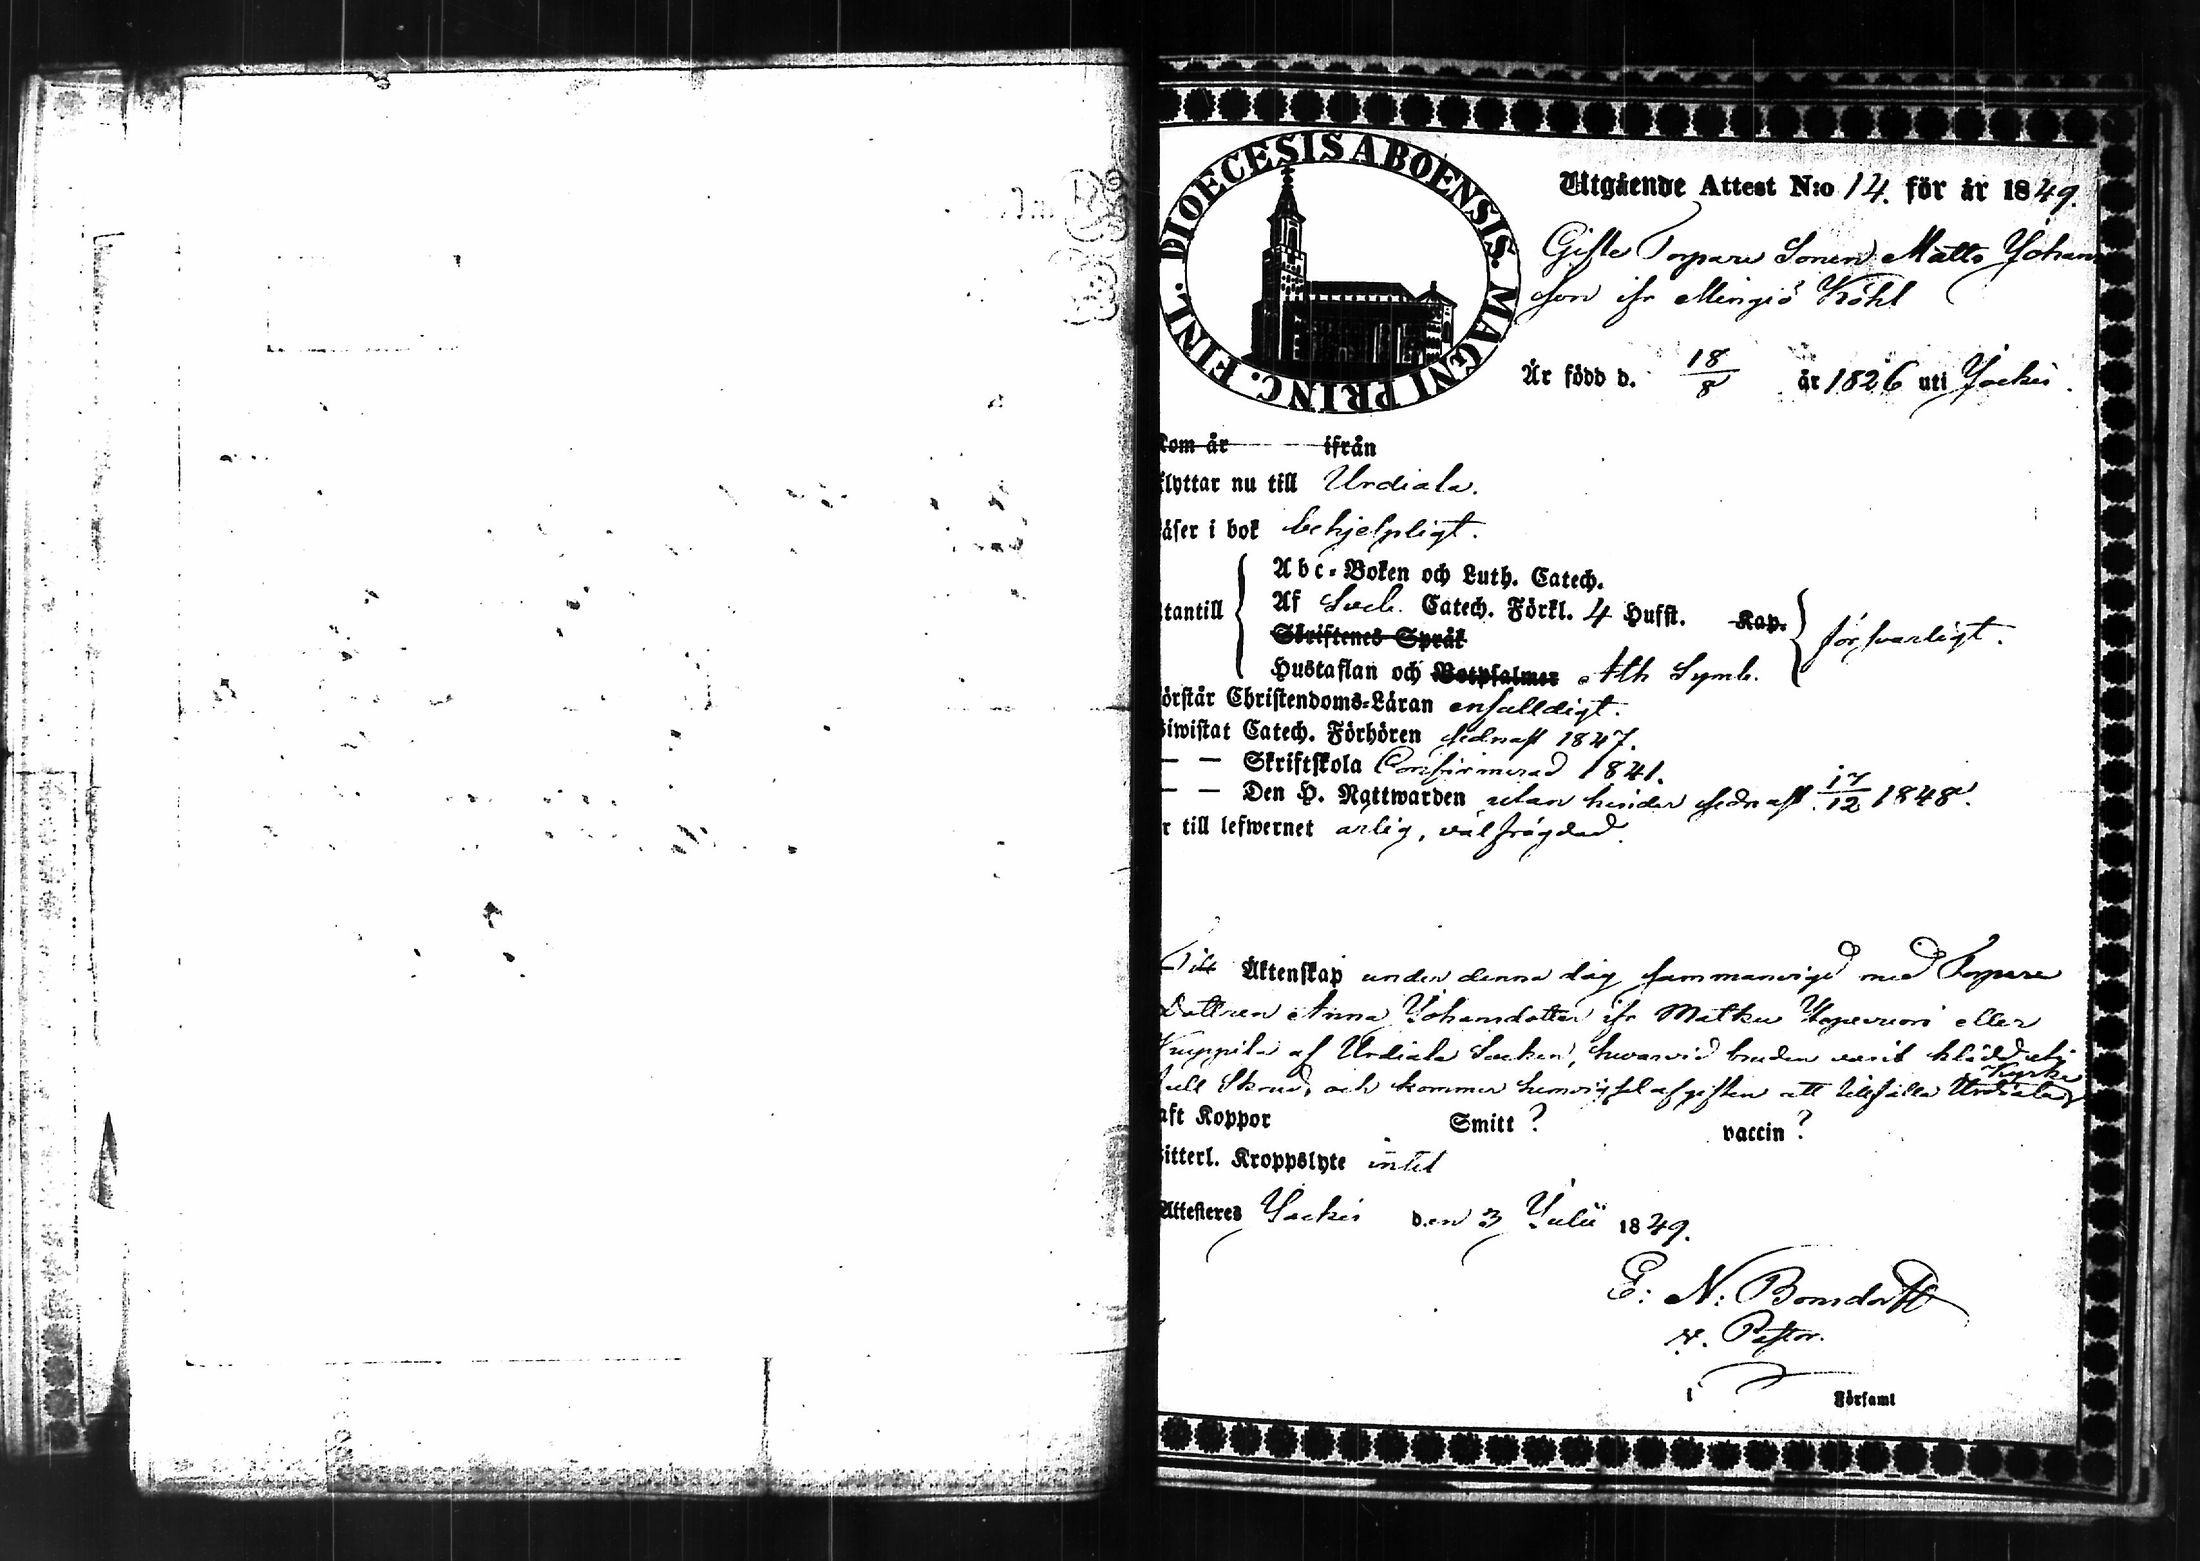 DIOECESIS ABOENSIS. MAGNI PRINC. FINL.
Utgående Attest N:o 14. för år 1849.
Gifte Torpare Sonen Matts Johan
son ifr Mingiö Köhl
Är född d. 18/8 år 1826 uti Jockis.
Kom år ifrån
flyttar nu till Urdiala.
läser i bok behjelpligt.
Abc-Boken och Luth. Catech.
utantill Af Sveb. Catech. Förkl. 4 Hufst. Kap. försvarligt.
Skriftenes Språk
Hustaflan och Botpsalmer Ath Symb.
förstår Christendoms-Läran enfalldigt.
Biwistat Catech. Förhören sednast 1847.
— — Skriftskola Confirmerad 1841.
— — Den H. Nattwarden utan hinder sednast 17/12 1848.
r till lefwernet ärlig, välfrägdad.
Till Äktenskap under denna dag sammanvigd med Torpare
Dottren Anna Johansdotter ifr Matku eller
Kuppila af Urdiala Socken, hvarvid bruden varit klädd uti
full Skrud, och kommer hemvigselafgiften att tillfalla Urdiala Kyrka
haft Koppor Smitt? vaccin?
Witterl. Kroppslyte intet
Attesteres Jockis den 3 Julii 1849.
E: N: Bonsdorff
v. Pastor.
i Församl